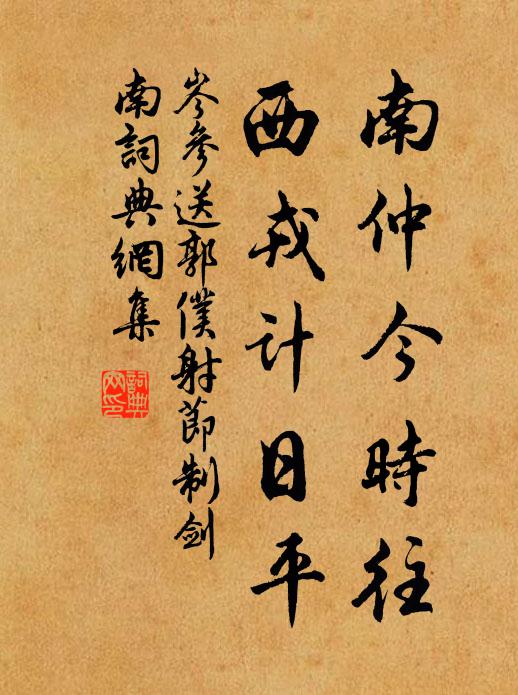 南仲今時往
西戎計日平
岑參送郭僕射節制劍
南詞典網集
詞典網印